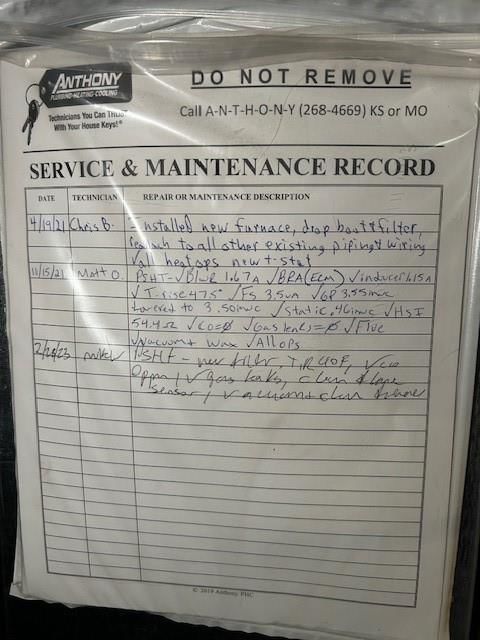 ANTHONY
PLUMBING·HEATING·COOLING
Technicians You Can Trust
With Your House Keys!®
DO NOT REMOVE
Call A-N-T-H-O-N-Y (268-4669) KS or MO
SERVICE & MAINTENANCE RECORD
DATE TECHNICIAN REPAIR OR MAINTENANCE DESCRIPTION
4/19/21 Chris B. -Installed new furnace, drop boot & filter,
reattach to all other existing piping & wiring
√ all heat ops new t-stat
11/15/21 Matt O. PSHT-√BLWR 1.67a √BRA(ECM) √inducer 1.15A
√T-rise 47.5° √FS 3.5ua √GP 3.55inwc
lowered to 3.50inwc √static .46inwc √HSI
54.4Ω √CO=∅ √Gas leaks=∅ √Flue
√Vacuum & Wax √All ops
2/28/23 PSHT - new filter, T.R 40F, √ co
0ppm, √ gas leaks, clean flame
sensor, vacuum & clean
© 2019 Anthony PHC